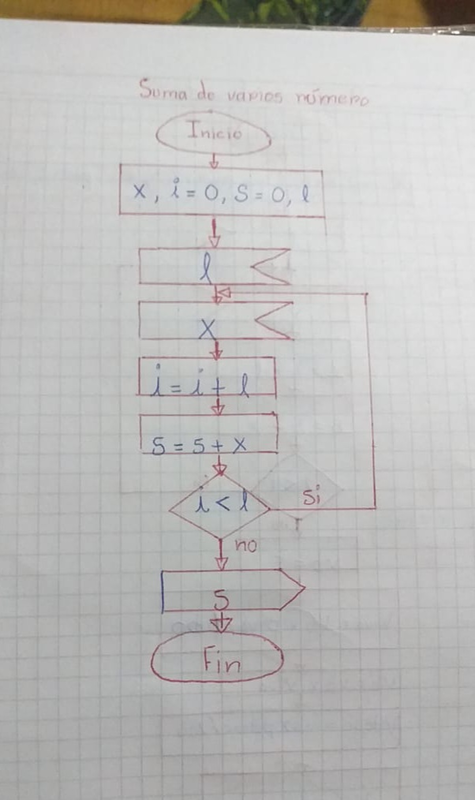 Suma de varios número
Inicio
x, i=0, S=0, l
l
x
i = i + l
S = S + x
i < l
Si
no
S
Fin